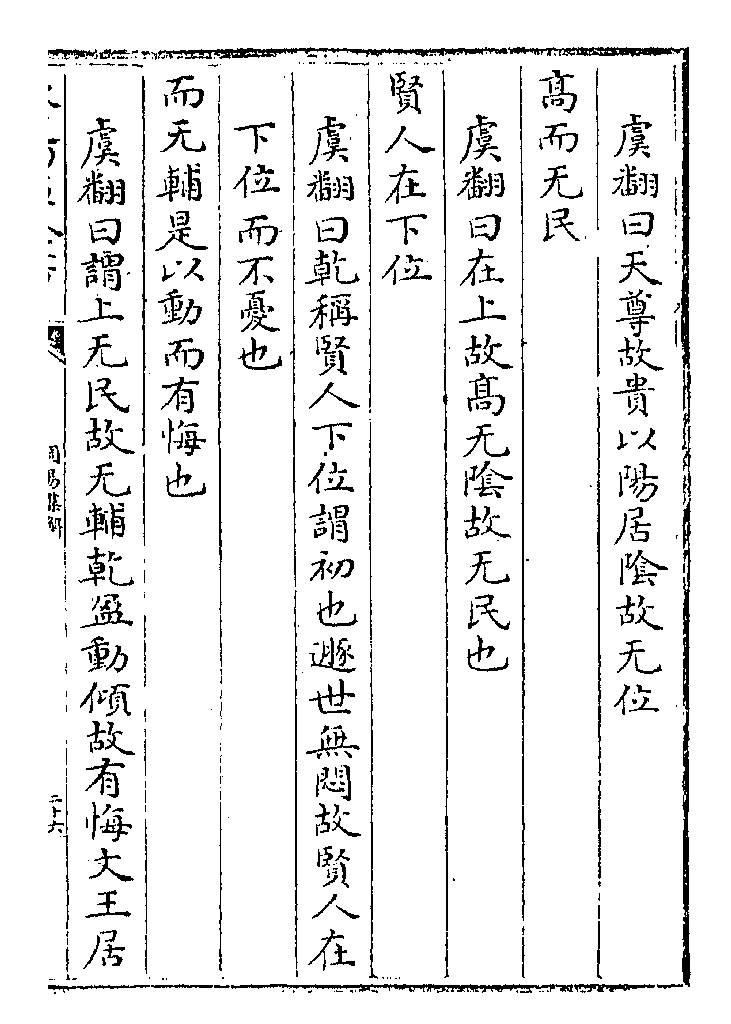 虞翻曰天尊故貴以陽居隂故无位
髙而无民
虞翻曰在上故髙无隂故无民也
賢人在下位
虞翻曰乾稱賢人下位謂初也遯世無悶故賢人在
下位而不憂也
而无輔是以動而有悔也
虞翻曰謂上无民故无輔乾盈動傾故有悔文王居
周易集解
二十六